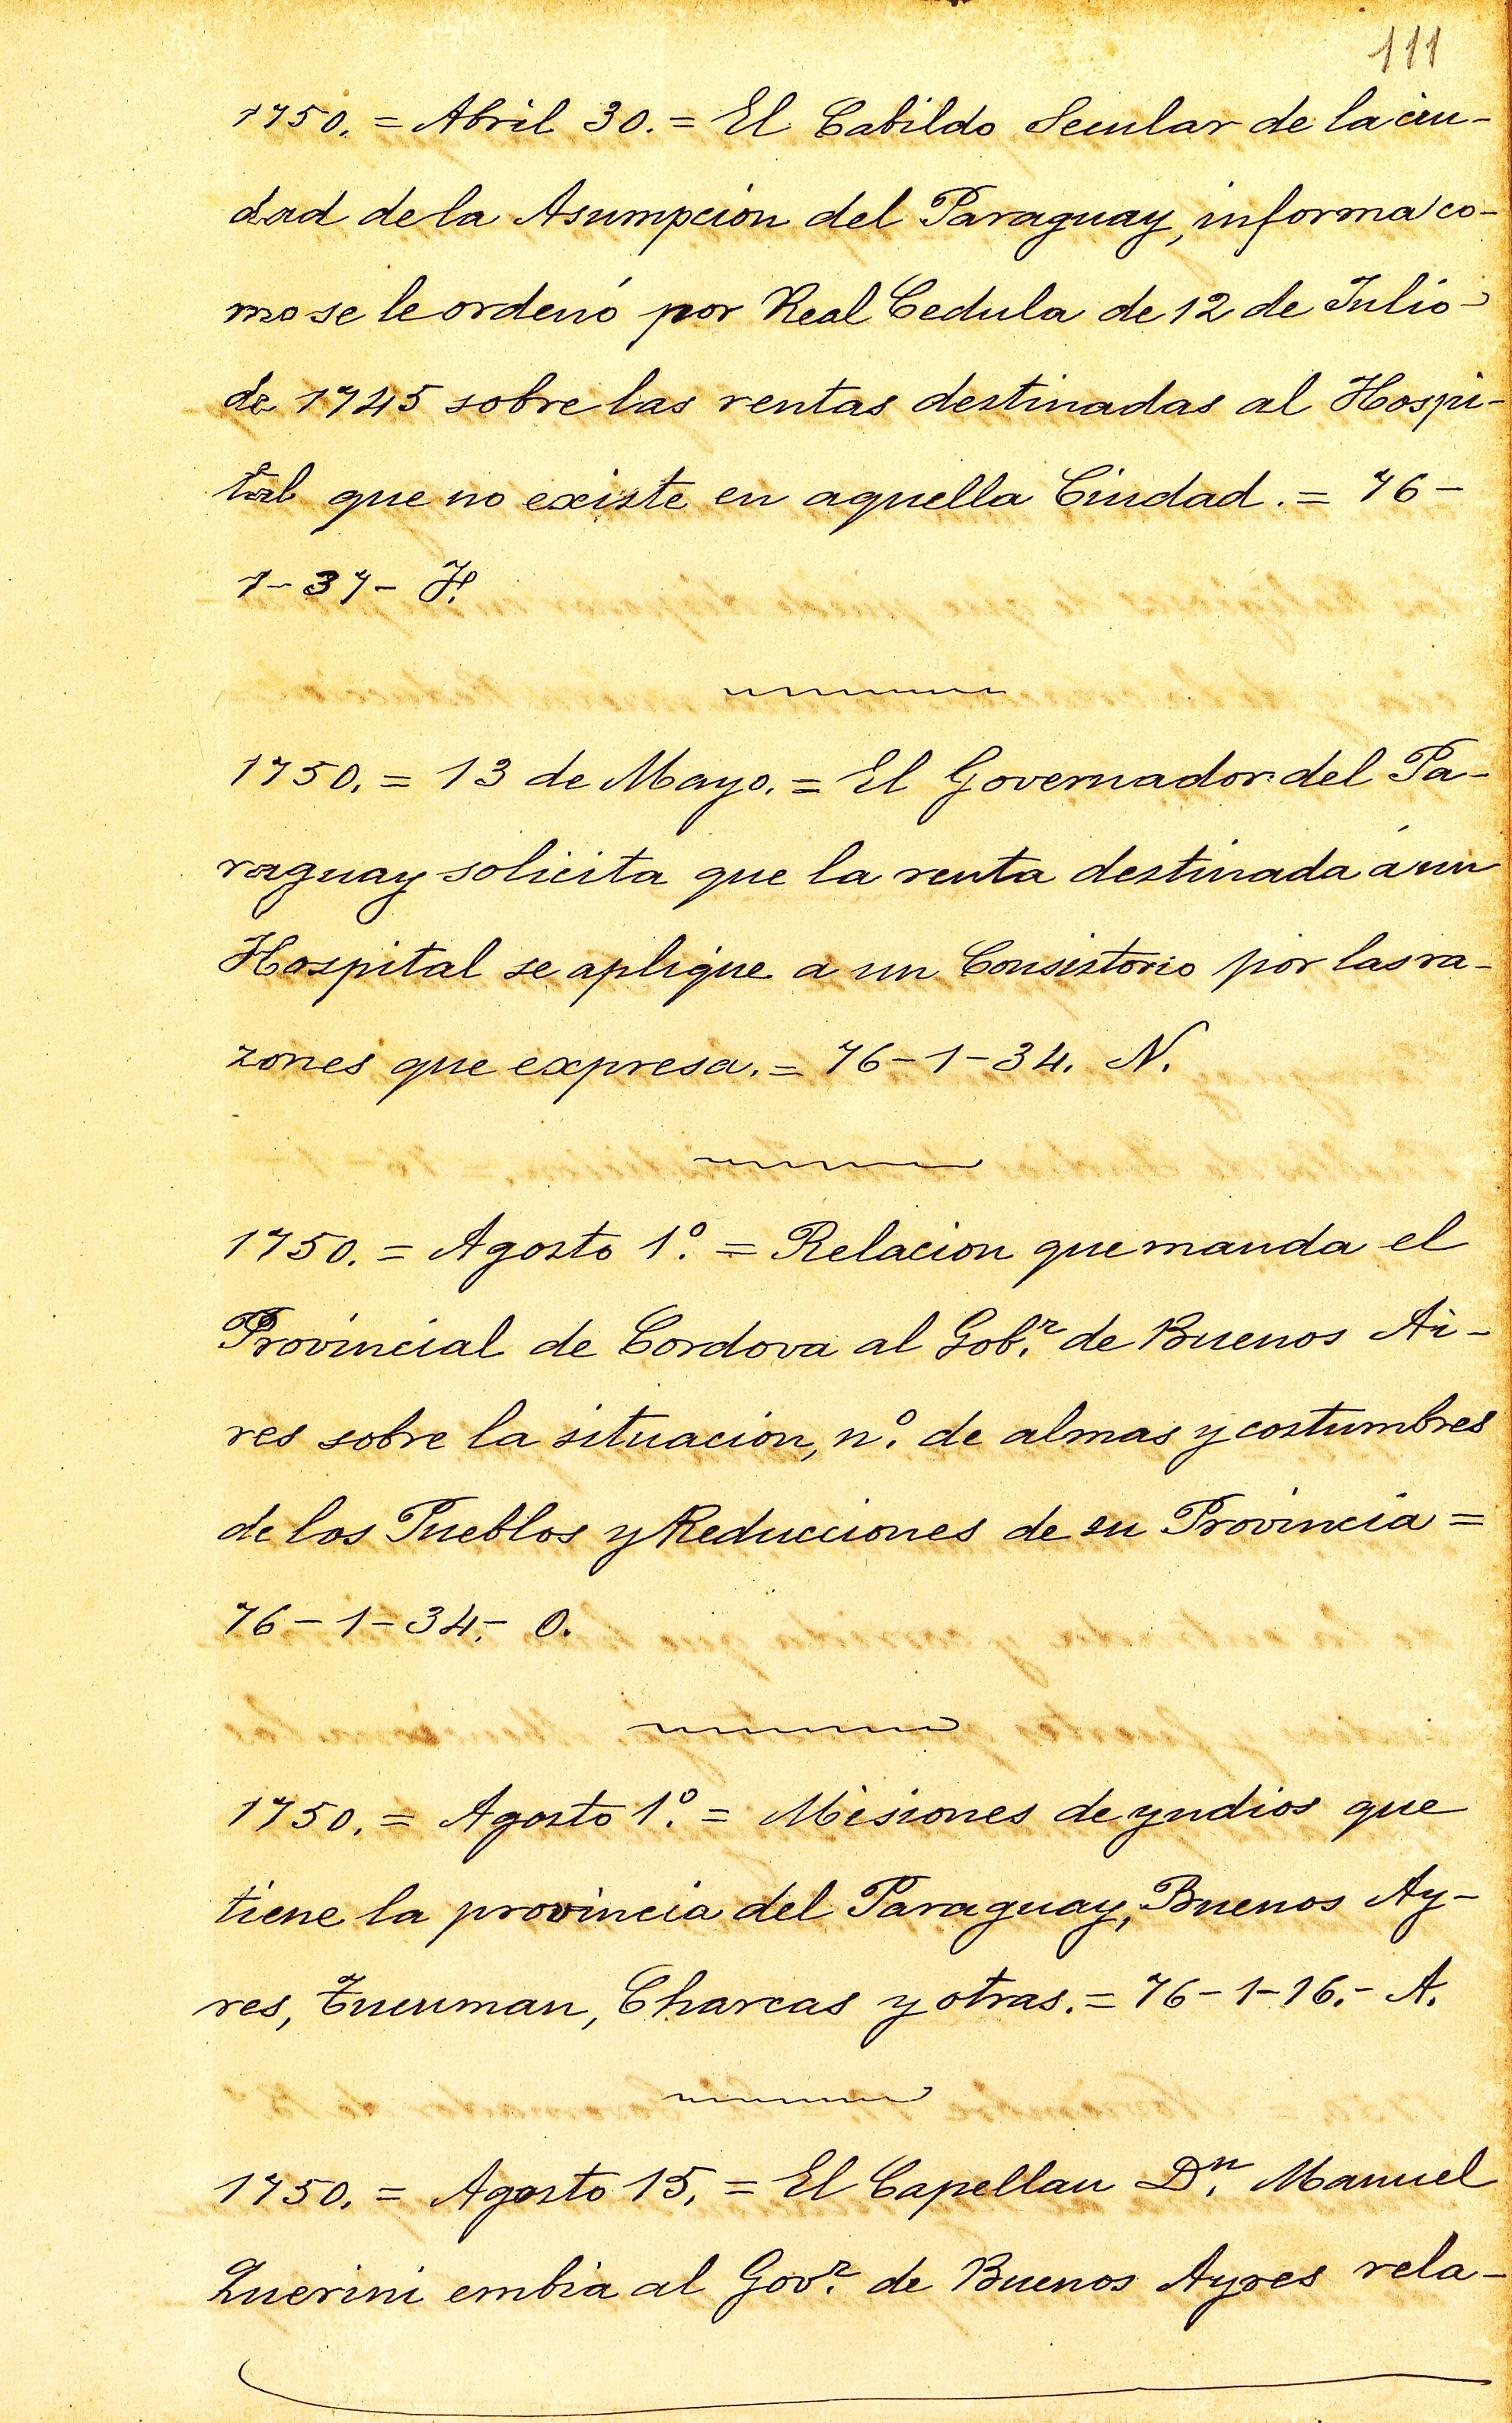 111
1750. = Abril 30. = El Cabildo Secular de la ciu-
dad de la Asumpcion del Paraguay, informa co-
mo se le ordenó por Real Cedula de 12 de Julio
de 1745 sobre las rentas destinadas al Hospi-
tal que no existe en aquella Ciudad. = 76-
1-37- H.
1750. = 13 de Mayo. = El Governador del Pa-
raguay solicita que la renta destinada á un
Hospital se aplique a un Consistorio por las ra-
zones que expresa. = 76-1-34. N.
1750. = Agosto 1º. = Relacion que manda el
Provincial de Cordova al Gob.r de Buenos Ai-
res sobre la situacion, nº. de almas y costumbres
de los Pueblos y Reducciones de su Provincia =
76-1-34.- O.
1750. = Agosto 1º. = Misiones de yndios que
tiene la provincia del Paraguay, Buenos Ay-
res, Tucuman, Charcas y otras. = 76-1-16.- A.
1750. = Agosto 15. = El Capellan D.n Manuel
Querini embia al Gov.r de Buenos Ayres rela-